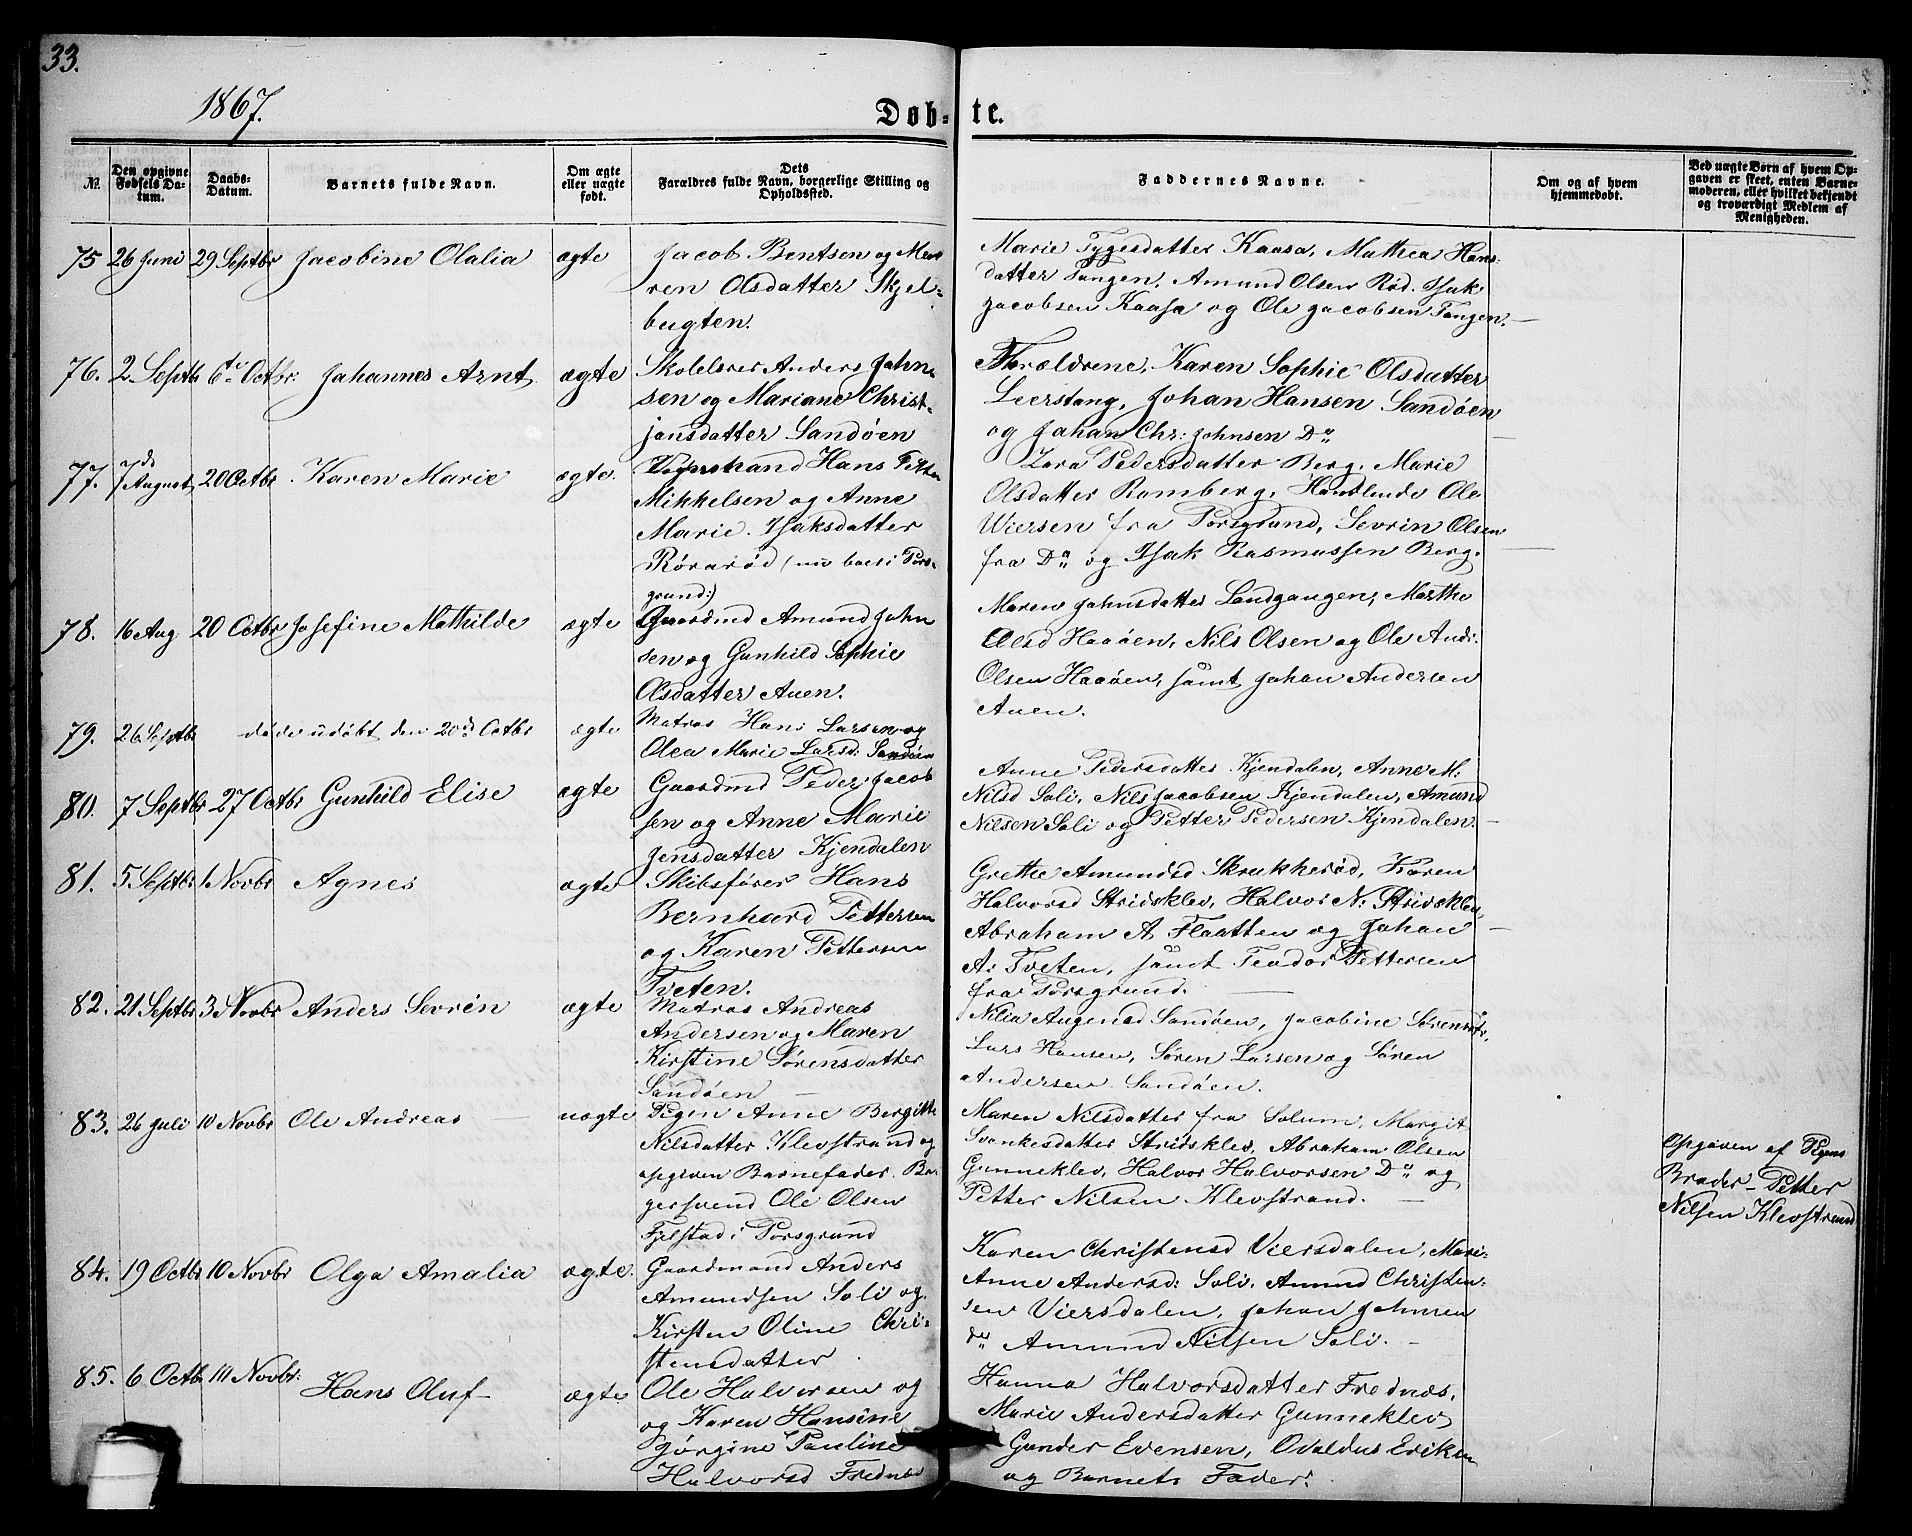 33.
1867.
Døb- te.
№
Den opgivne Fødsels Da-tum.
Daabs-Datum.
Barnets fulde Navn.
Om ægte eller uægte født.
Dets Forældres fulde Navn, borgerlige Stilling og Opholdssted.
Faddernes Navne.
Om og af hvem hjemmedøbt.
Ved uægte Børn af hvem Op-gaven er skeet, enten Barne-moderen, eller hvilket bekjendt og troværdigt Medlem af Menigheden.
75 26 Juni 29 Septbr Jacobine Olalia ægte
Jacob Bentsen og Ma-
ren Olsdatter Skjel-
bugten.
Marie Tygesdatter Kaasa, Mathea Hans-
datter Tangen, Amund Olsen Rød, Isak
Jacobsen Kaasa og Ole Jacobsen Tangen.
76. 2 Septb 6te Octbr. Johannes Arnt ægte
Skolelærer Anders John-
sen og Mariane Christ-
jansdatter Sandøen
Forældrene, Karen Sophie Olsdatter
Leerstang, Johan Hansen Sandøen
og Johan Chr: Johnsen Do
77. 7de August 20 Octbr. Karen Marie ægte.
Hans Petter
Mikkelsen og Anne
Marie Isaksdatter
Rørarød (nu boer i Pors-
grund:)
Lora Pedersdatter Berg, Marie
Olsdatter Ramberg, Handlende Ole
Wiersen fra Porsgrund, Sevrin Olsen
fra Do og Isak Rasmussen Berg.
78. 16 Aug 20 Octbr Josefine Mathilde ægte
Gaardmd Amund John
sen og Gunhild Sophie
Olsdatter Auen.
Maren Johnsdatter Landgangen, Marthe
Olsd Haaøen, Nils Olsen og Ole Andr:
Olsen Haaøen, samt Johan Andersen
Auen.
79. 26 Septbr døde udøbt den 20de Octbr ægte
Matros Hans Larsen og
Olea Marie Larsd: Sandøen
80. 7 Septbr 27 Octbr Gunhild Elise ægte
Gaardmd Peder Jacob
sen og Anne Marie
Jensdatter Kjendalen
Anne Pedersdatter Kjendalen, Anne M:
Nilsd Soli, Nils Jacobsen Kjendalen, Amund
Nilsen Soli og Petter Pedersen Kjendalen.
81. 5 Septbr 1 Novbr Agnes ægte
Skibsfører Hans
Bernhard Pettersen
og Karen Pettersen
Tveten.
Grethe Amundsd Skrukkerød, Karen
Halvorsd Stridsklev, Halvor N: Stridsklev,
Abraham A Flaatten og Johan
A: Tveten, samt Teodor Pettersen
fra Porsgrund.
82. 21 Septbr 3 Novbr Anders Sevrin ægte
Matros Andreas
Andersen og Maren
Kirstine Sørensdatter
Sandøen
Nilia Augensd Sandøen, Jacobine Sørensdtr,
Lars Hansen, Søren Larsen og Søren
Andersen Sandøen.
83. 26 Juli 10 Novbr Ole Andreas uægte
Pigen Anne Bergitte
Nilsdatter Klevstrand og
opgiven Barnefader. Bø-
gersvend Ole Olsen
Fjelstad i Porsgrund
Maren Nilsdatter fra Solum, Margit
Svenkesdatter Stridsklev, Abraham Olsen
Gunneklev, Halvor Halvorsen Do og
Petter Nilsen Klevstrand.
Opgiven af Pigens
Broder - Petter
Nilsen Klevstrand
84. 19 Octbr 10 Novbr Olga Amalia ægte.
Gaardmand Anders
Amundsen Soli og
Kirsten Oline Chri-
stensdatter.
Karen Christensd Viersdalen, Mari-
Anne Andersd: Soli, Amund Christen-
sen Viersdalen, Johan Johnsen
do Amund Nilsen Soli.
85. 6 Octb 10 Novbr. Hans Oluf ægte
Ole Halvorsen og
og Karen Hansine
Jørgine Pauline
Halvorsd Frednæs
Hanna Halvorsdatter Frednæs,
Marie Andersdatter Gunneklev
Gunder Evensen, Osvaldus Eriksen
og Barnets Fader.